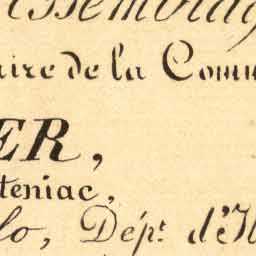 ssemblag
aire de la Comm
ER,
teniac,
lo, Dépt. d'Il